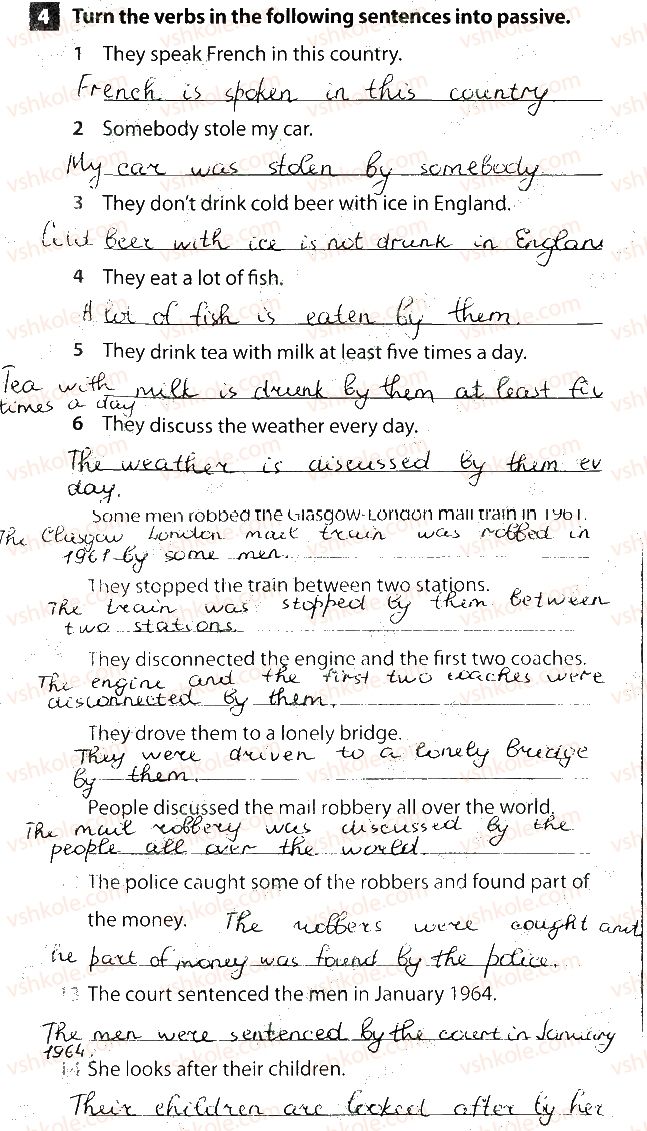 4 Turn the verbs in the following sentences into passive.
1 They speak French in this country.
French is spoken in this country
2 Somebody stole my car.
My car was stolen by somebody
3 They don't drink cold beer with ice in England.
Cold beer with ice is not drunk in Englan
4 They eat a lot of fish.
A lot of fish is eaten by them.
5 They drink tea with milk at least five times a day.
Tea with milk is drunk by them at least fiv
times a day
6 They discuss the weather every day.
The weather is discussed by them ev
day.
Some men robbed the Glasgow-London mail train in 1961.
The Glasgow London mail train was robbed in
1961 by some men.
They stopped the train between two stations.
The train was stopped by them between
two stations
They disconnected the engine and the first two coaches.
The engine and the first two coaches were
disconnected by them.
They drove them to a lonely bridge.
They were driven to a lonely bridge
by them.
People discussed the mail robbery all over the world.
The mail robbery was discussed by the
people all over the world.
The police caught some of the robbers and found part of
the money. The robbers were cought and
he part of money was found by the police.
13 The court sentenced the men in January 1964.
The men were sentenced by the court in January
1964.
14 She looks after their children.
Their children are looked after by her